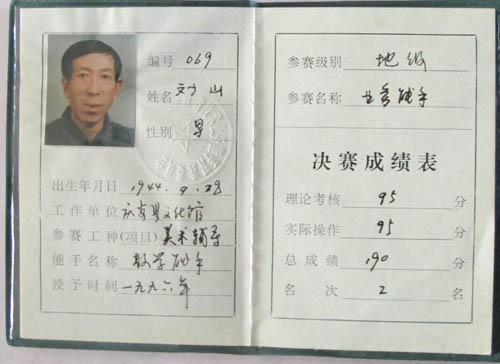 编号 069
姓名 刘山
性别 男
出生年月日 1944.9.28
工作单位 庆安县文化馆
参赛工种(项目) 美术辅导
能手名称 教学能手
授予时间 一九九六年
参赛级别 地级
参赛名称 能手
决赛成绩表
理论考核 95 分
实际操作 95 分
总成绩 190 分
名次 2 名